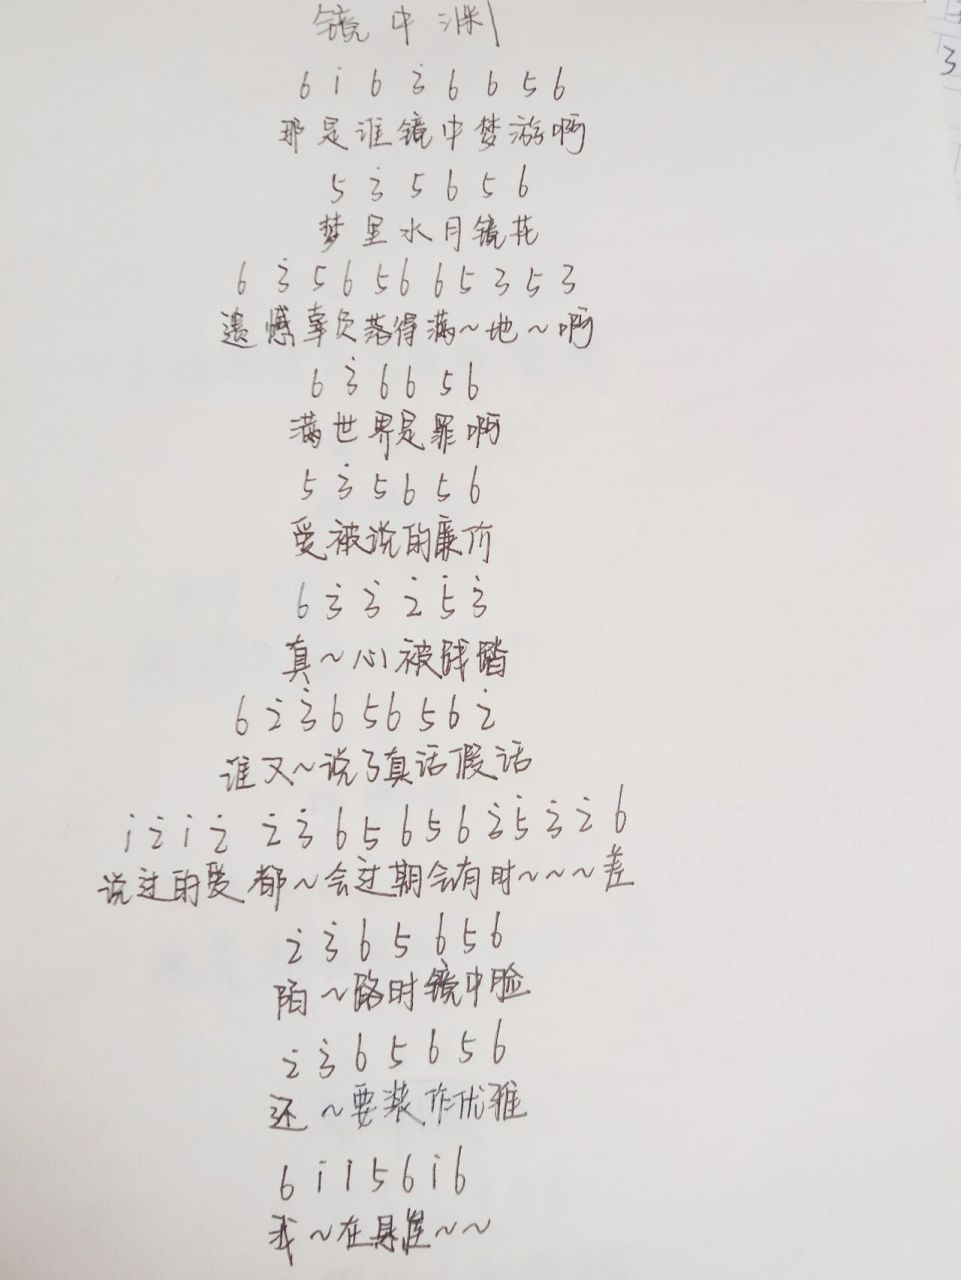 镜中渊
6 i 6 3̇ 6 6 5 6
那是谁镜中梦游啊
5 3̇ 5 6 5 6
梦里水月镜花
6 3̇ 5 6 5 6 6 5 3 5 3
遗憾辜负落得满~地~啊
6 3̇ 6 6 5 6
满世界是罪啊
5 3̇ 5 6 5 6
爱被说的廉价
6 3̇ 3̇ 2̇ 5̇ 3̇
真~心被践踏
6 2̇ 3̇ 6 5 6 5 6 2̇
谁又~说了真话假话
i 2̇ i 2̇ 2̇ 3̇ 6 5 6 5 6 3̇ 5̇ 3̇ 2̇ 6
说过的爱都~会过期会有时~~~差
2̇ 3̇ 6 5 6 5 6
陌~路时镜中脸
2̇ 3̇ 6 5 6 5 6
还~要装作优雅
6 i 1 5 6 i 6
我~在悬崖~~
3